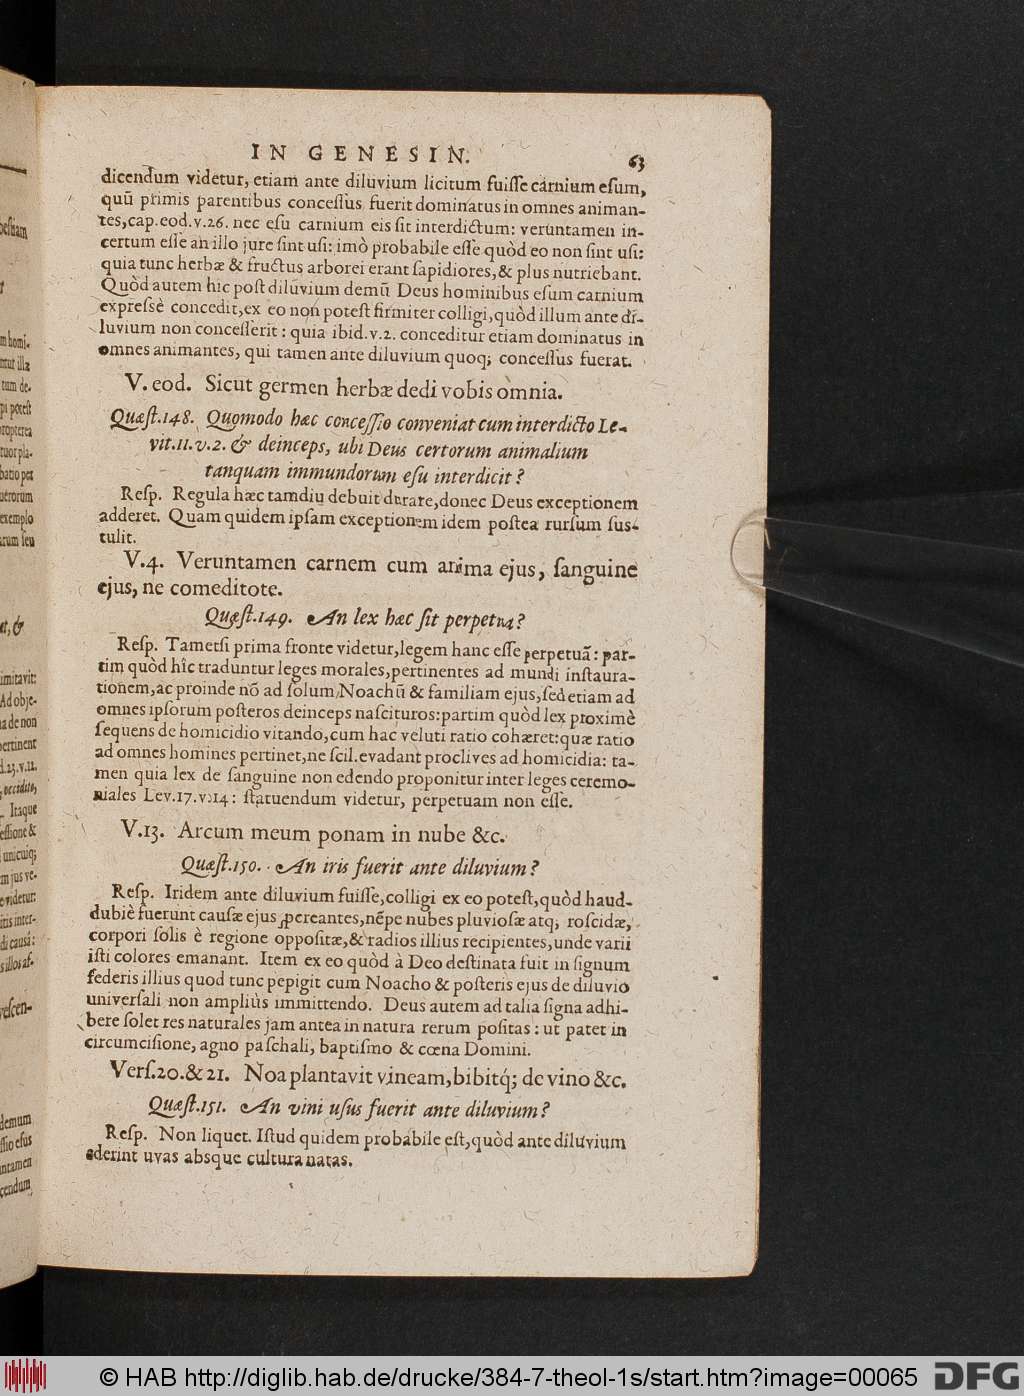 IN GENESIN. 63
dicendum videtur, etiam ante diluvium licitum fuiſſe carnium eſum,
quū primis parentibus conceſſus fuerit dominatus in omnes animan-
tes, cap. eod. v. 26. nec eſu carnium eis ſit interdictum: veruntamen in-
certum eſſe an illo jure ſint uſi: imò probabile eſſe quòd eo non ſint uſi:
quia tunc herbæ & fructus arborei erant ſapidiores, & plus nutriebant.
Quòd autem hic poſt diluvium demū Deus hominibus eſum carnium
expreſsè concedit, ex eo non poteſt firmiter colligi, quòd illum ante di-
luvium non conceſſerit: quia ibid. v. 2. conceditur etiam dominatus in
omnes animantes, qui tamen ante diluvium quoq; conceſſus fuerat.
V. eod. Sicut germen herbæ dedi vobis omnia.
Quæſt. 148. Quomodo hæc conceſſio conveniat cum interdicto Le-
vit. 11. v. 2. & deinceps, ubi Deus certorum animalium
tanquam immundorum eſu interdicit?
Reſp. Regula hæc tamdiu debuit durare, donec Deus exceptionem
adderet. Quam quidem ipſam exceptionem idem poſtea rurſum ſus-
tulit.
V. 4. Veruntamen carnem cum anima ejus, ſanguine
ejus, ne comeditote.
Quæſt. 149. An lex hæc ſit perpetua?
Reſp. Tametſi prima fronte videtur, legem hanc eſſe perpetuā: par-
tim quòd hîc traduntur leges morales, pertinentes ad mundi inſtaura-
tionem, ac proinde nō ad ſolum Noachū & familiam ejus, ſed etiam ad
omnes ipſorum poſteros deinceps naſcituros: partim quòd lex proximè
ſequens de homicidio vitando, cum hac veluti ratio cohæret: quæ ratio
ad omnes homines pertinet, ne ſcil. evadant proclives ad homicidia: ta-
men quia lex de ſanguine non edendo proponitur inter leges ceremo-
niales Lev. 17. v. 14: ſtatuendum videtur, perpetuam non eſſe.
V. 13. Arcum meum ponam in nube &c.
Quæſt. 150. An iris fuerit ante diluvium?
Reſp. Iridem ante diluvium fuiſſe, colligi ex eo poteſt, quòd haud-
dubiè fuerunt cauſæ ejus ꝓcreantes, nēpe nubes pluvioſæ atq; roſcidæ,
corpori ſolis è regione oppoſitæ, & radios illius recipientes, unde varii
iſti colores emanant. Item ex eo quòd à Deo deſtinata fuit in ſignum
federis illius quod tunc pepigit cum Noacho & poſteris ejus de diluvio
univerſali non ampliùs immittendo. Deus autem ad talia ſigna adhi-
bere ſolet res naturales jam antea in natura rerum poſitas: ut patet in
circumciſione, agno paſchali, baptiſmo & cœna Domini.
Verſ. 20. & 21. Noa plantavit vineam, bibitq́; de vino &c.
Quæſt. 151. An vini uſus fuerit ante diluvium?
Reſp. Non liquet. Iſtud quidem probabile eſt, quòd ante diluvium
ederint uvas absque cultura natas.
© HAB http://diglib.hab.de/drucke/384-7-theol-1s/start.htm?image=00065
DFG